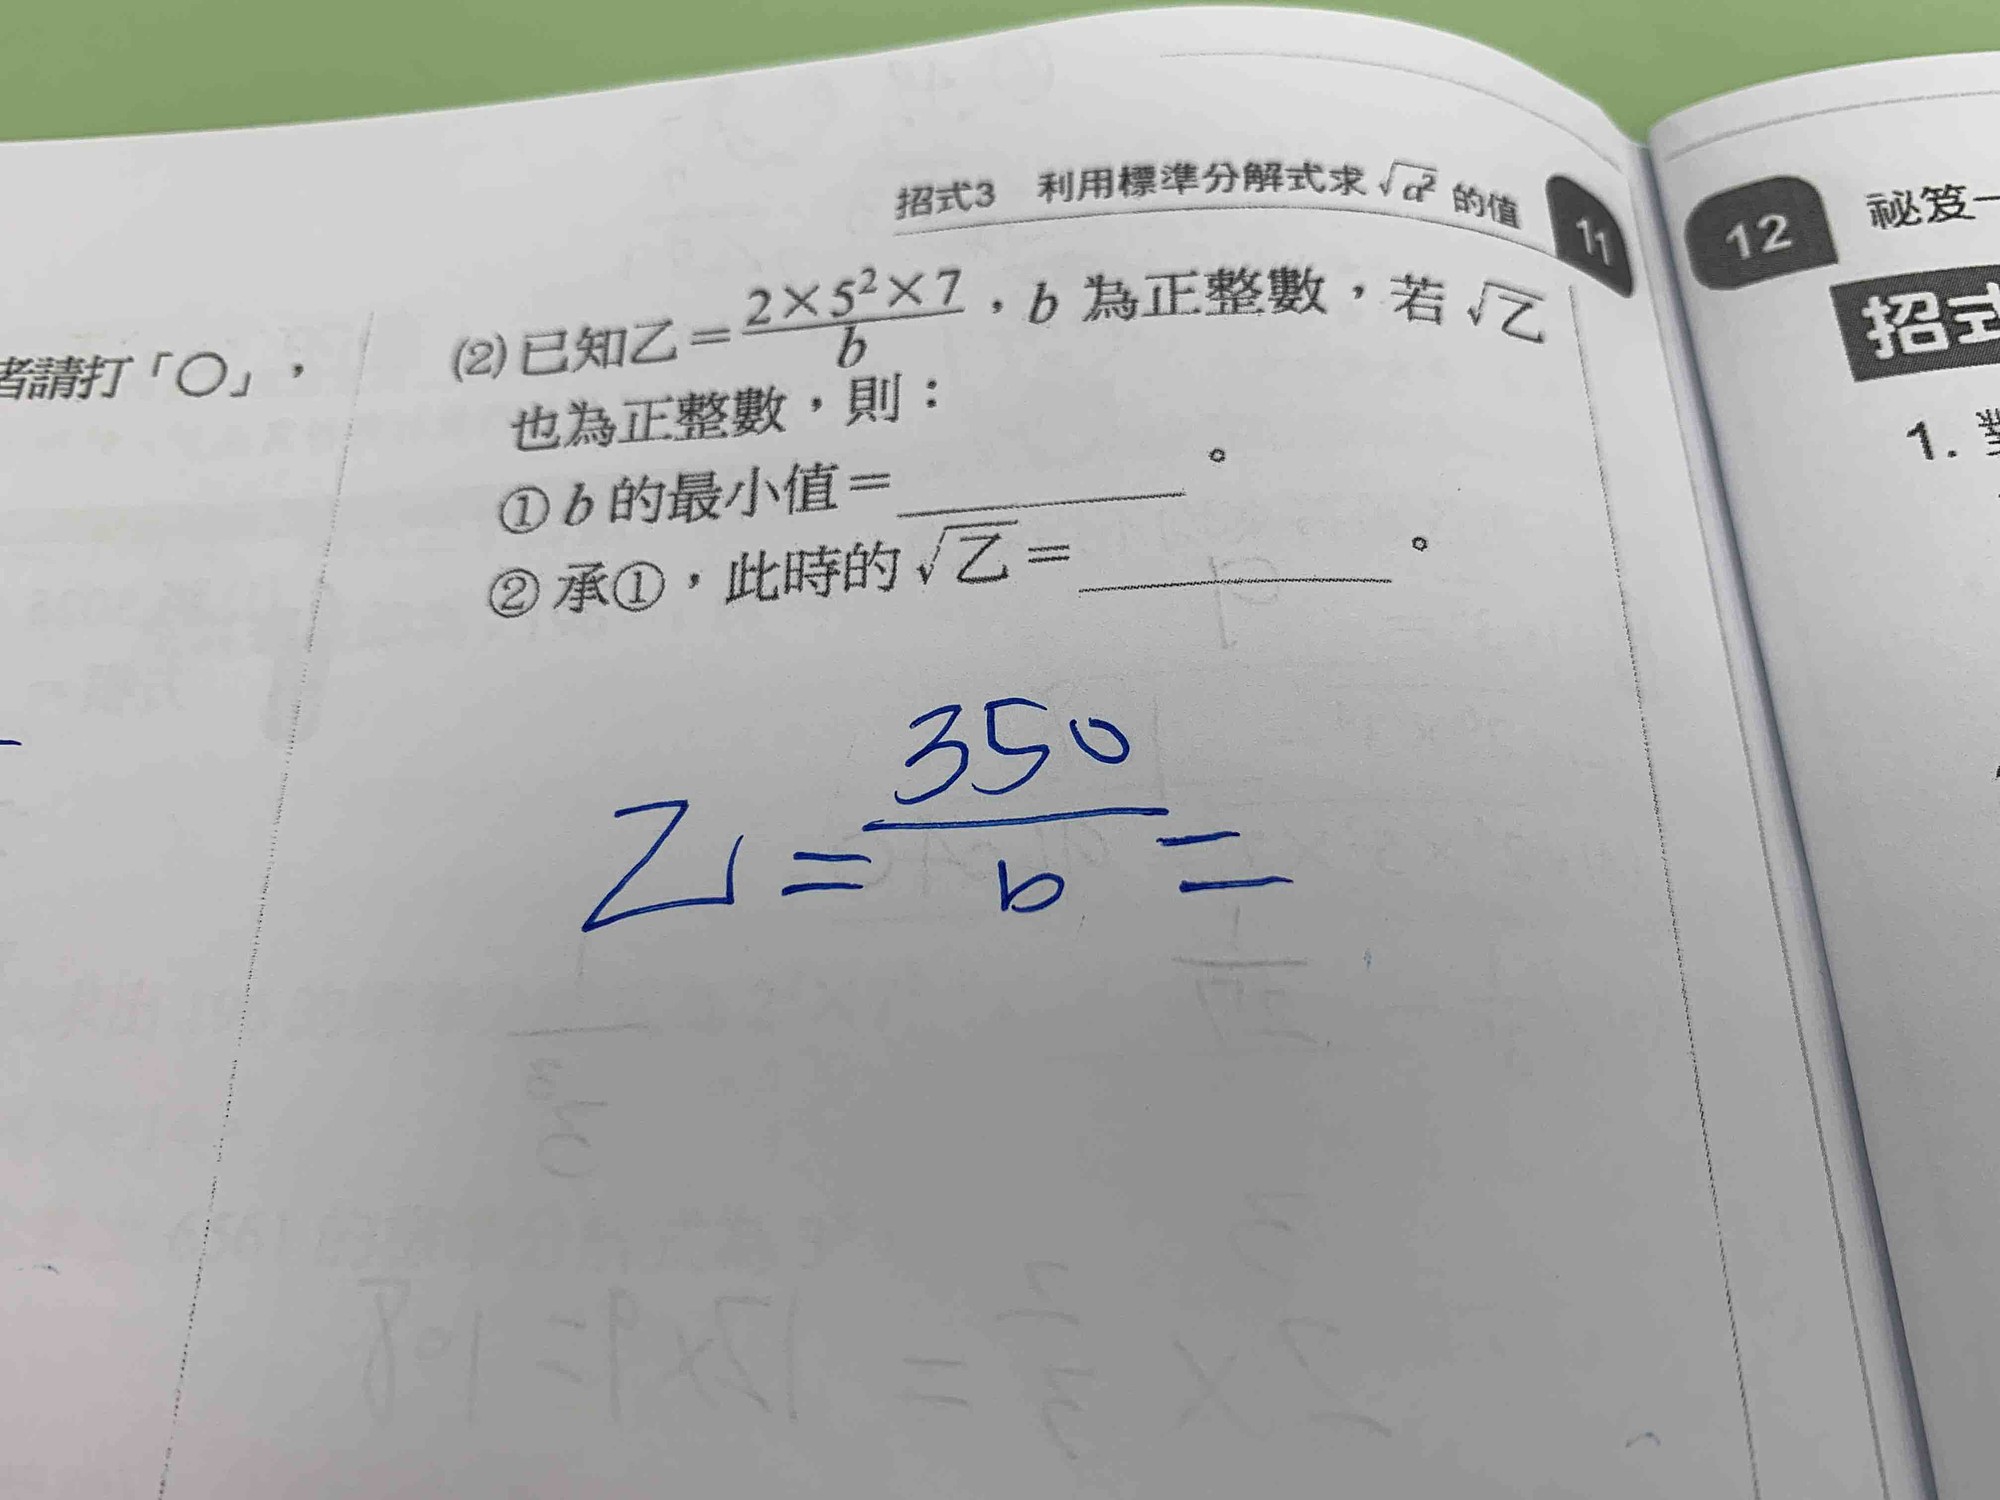 招式3 利用標準分解式求 √a² 的值 11
12 祕笈一
招式
1.
者請打「○」，
(2) 已知乙＝2×5²×7/b，b 為正整數，若 √乙
也為正整數，則：
① b 的最小值＝ 。
② 承①，此時的 √乙＝ 。
乙 = 350/b =